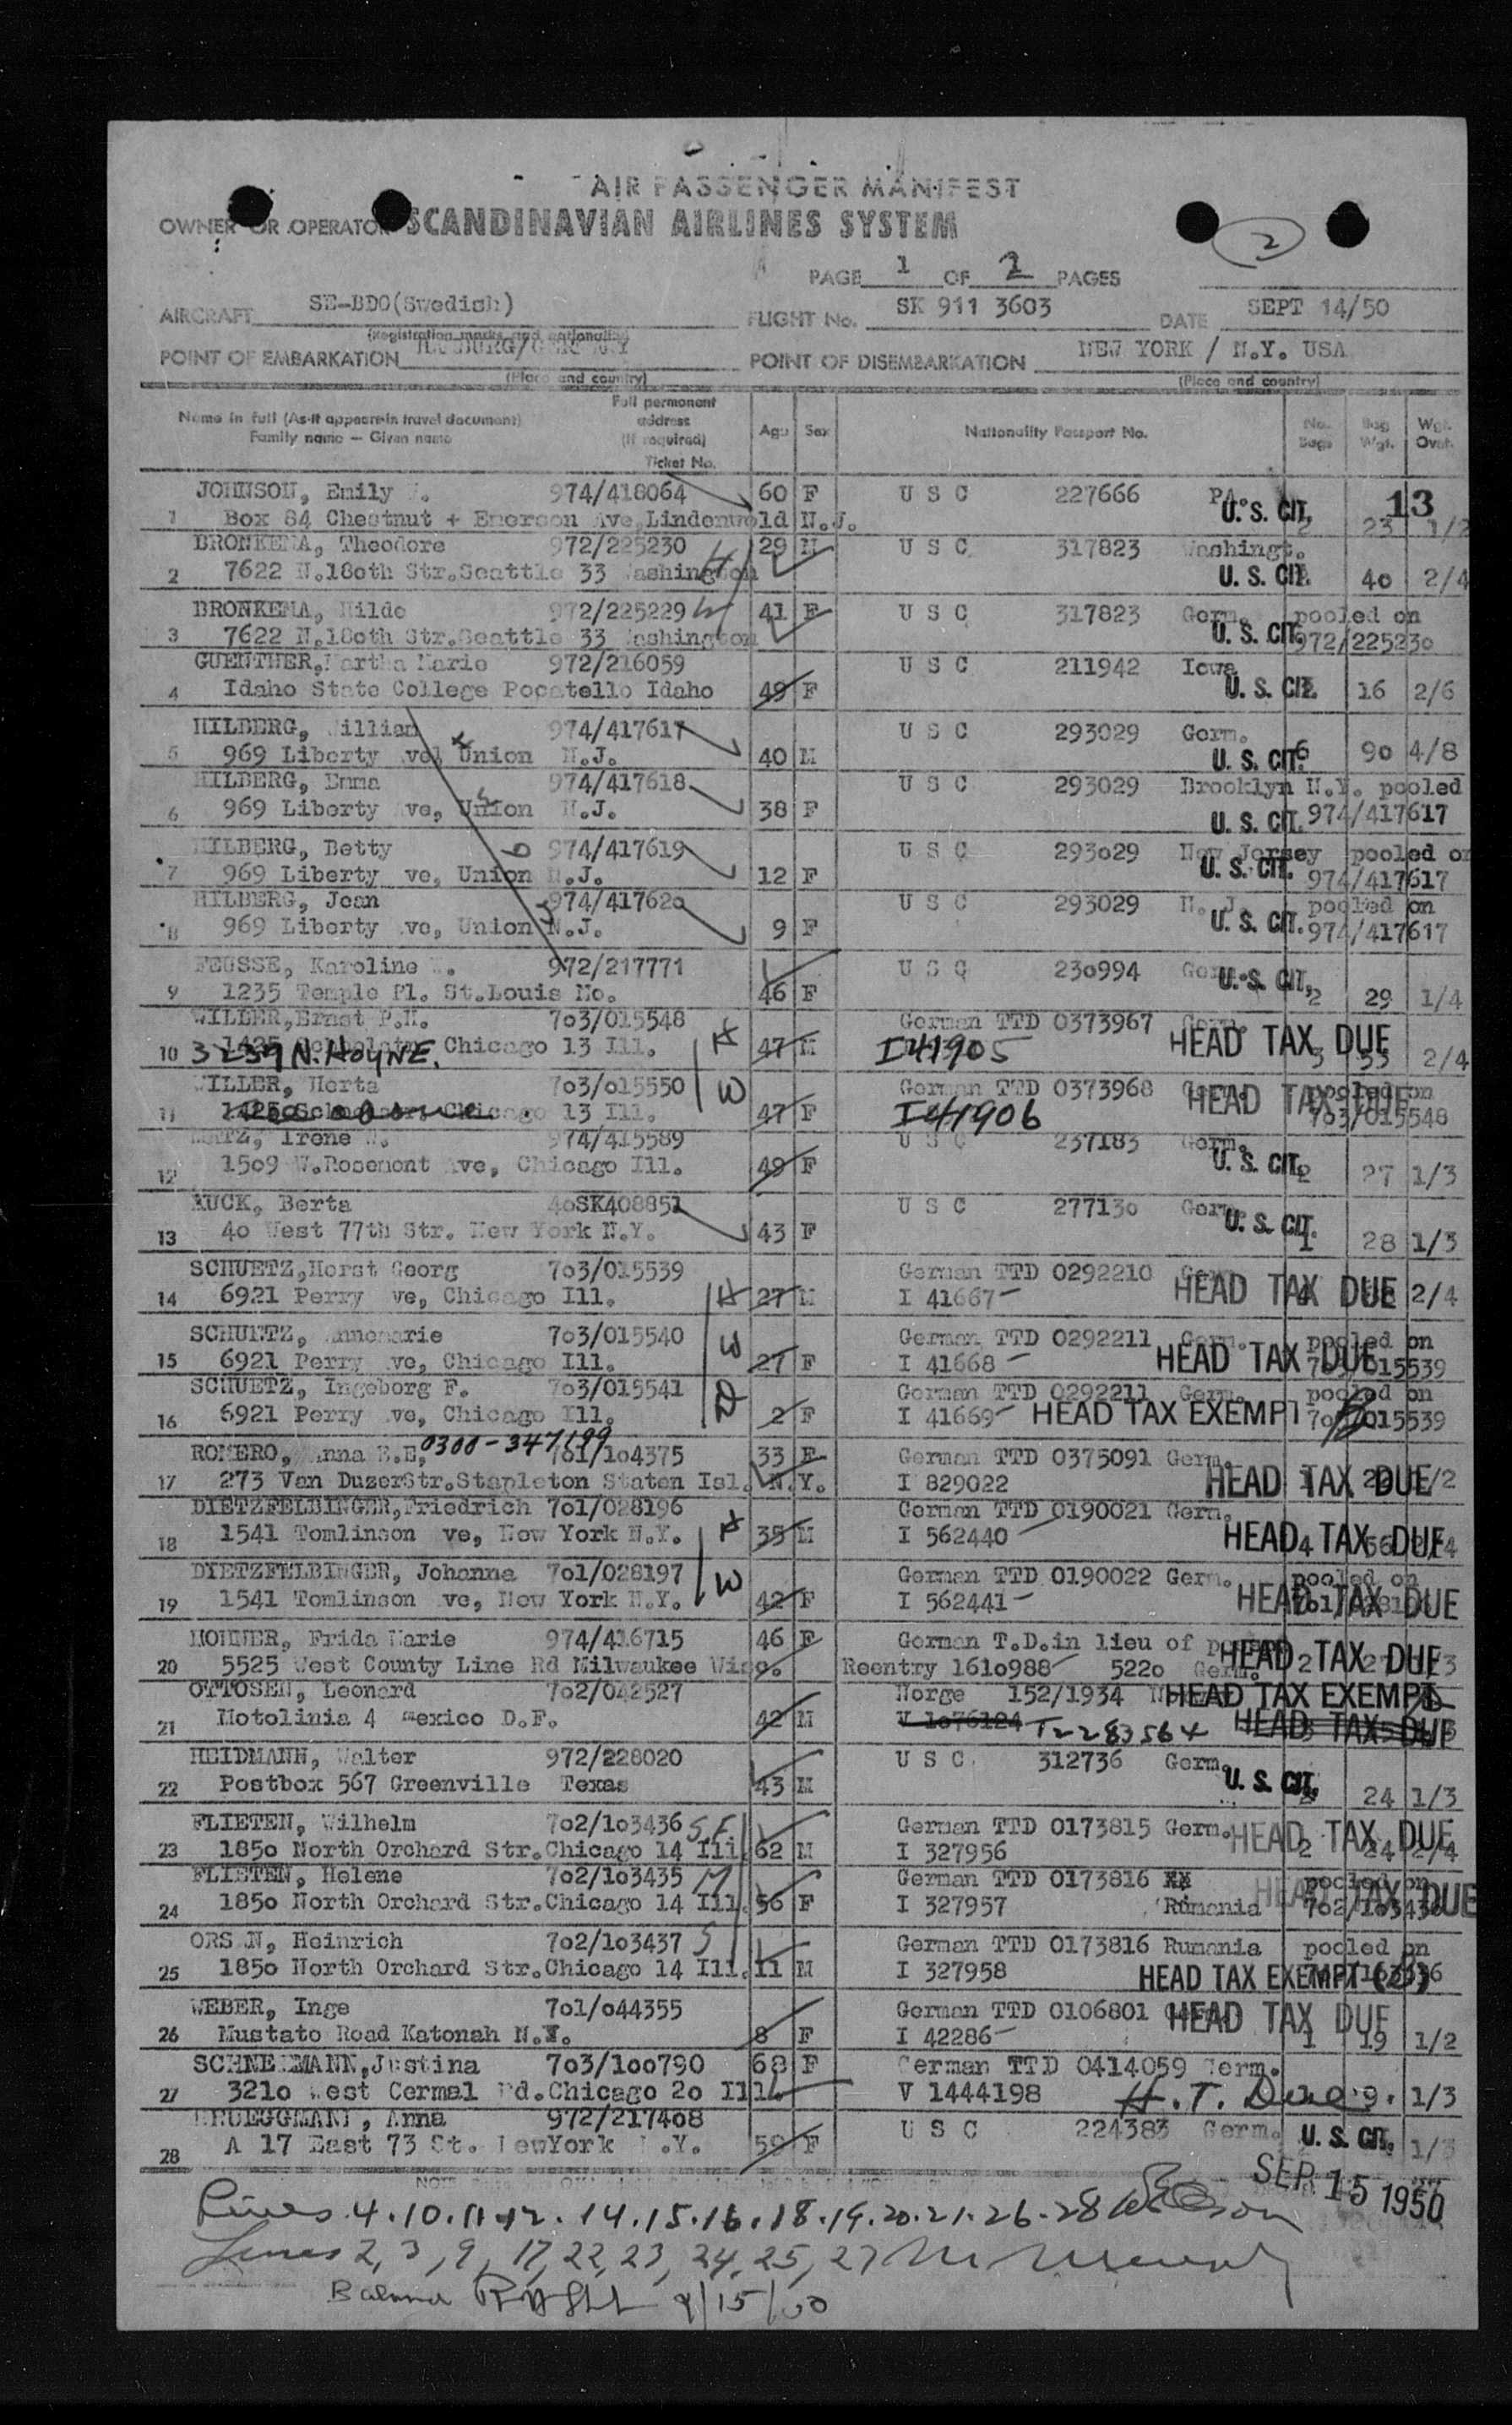 AIR PASSENGER MANIFEST
OWNER OR OPERATOR SCANDINAVIAN AIRLINES SYSTEM
2
PAGE 1 OF 2 PAGES
AIRCRAFT SE-BDO(Swedish) FLIGHT No. SK 911 3603 DATE SEPT 14/50
(Registration marks and nationality)
POINT OF EMBARKATION HAMBURG/GERMANY POINT OF DISEMBARKATION NEW YORK / N.Y. USA
(Place and country) (Place and country)
Name in full (As it appears in travel document) Full permanent address (If required) Age Sex Nationality Passport No. No. Bags Bag Wgt. Wgt. Ovwt.
Family name — Given name Ticket No.
JOHNSON, Emily 974/418064 60 F U S C 227666 PA. U. S. CIT. 13
1 Box 84 Chestnut + Emerson Ave, Lindenwold N.J. 2 23 1/2
BRONKEMA, Theodore 972/225230 H 29 M U S C 317823 Washingt.
2 7622 N.180th Str.Seattle 33 Washington U. S. CIT. 40 2/4
BRONKEMA, Hilde 972/225229 W 41 F U S C 317823 Germ. pooled on
3 7622 N.180th Str.Seattle 33 Washington U. S. CIT. 972/225230
GUENTHER, Martha Marie 972/216059 U S C 211942 Iowa
4 Idaho State College Pocatello Idaho 49 F U. S. CIT. 16 2/6
HILBERG, William 974/417617 U S C 293029 Germ.
5 969 Liberty Ave, Union N.J. 40 M U. S. CIT. 6 90 4/8
HILBERG, Emma 974/417618 U S C 293029 Brooklyn N.Y. pooled
6 969 Liberty Ave, Union N.J. 38 F U. S. CIT. 974/417617
HILBERG, Betty 974/417619 U S C 293029 New Jersey pooled on
7 969 Liberty Ave, Union N.J. 12 F U. S. CIT. 974/417617
HILBERG, Jean 974/417620 U S C 293029 N. J. pooled on
8 969 Liberty Ave, Union N.J. 9 F U. S. CIT. 974/417617
FEUSSE, Karoline 972/217771 U S C 230994 Germ. U. S. CIT.
9 1235 Temple Pl. St.Louis Mo. 46 F 2 29 1/4
WILLER, Ernst P.H. 703/015548 H German TTD 0373967 Germ. HEAD TAX DUE
10 3239 N. HOYNE. Chicago 13 Ill. 47 M I 41905 3 53 2/4
WILLER, Herta 703/015550 W German TTD 0373968 HEAD TAX DUE pooled on
11 Chicago 13 Ill. 47 F I 41906 703/015548
Irene 974/415589 U S C 237183 Germ.
12 1509 W.Rosemont Ave, Chicago Ill. 49 F U. S. CIT. 2 27 1/3
AUCK, Berta 40SK408851 U S C 277130 Germ. U. S. CIT.
13 40 West 77th Str. New York N.Y. 43 F 1 28 1/3
SCHUETZ, Horst Georg 703/015539 H German TTD 0292210 Germ. HEAD TAX DUE
14 6921 Perry Ave, Chicago Ill. 27 M I 41667 2/4
SCHUETZ, Annemarie 703/015540 W German TTD 0292211 Germ. pooled on
15 6921 Perry Ave, Chicago Ill. 27 F I 41668 HEAD TAX DUE 703/015539
SCHUETZ, Ingeborg F. 703/015541 D German TTD 0292211 Germ. pooled on
16 6921 Perry Ave, Chicago Ill. 2 F I 41669 HEAD TAX EXEMPT 703/015539
ROMERO, Anna E.E. 0300-347199 701/104375 33 F German TTD 0375091 Germ.
17 273 Van DuzerStr.Stapleton Staten Isl. N.Y. I 829022 HEAD TAX DUE
DIETZFELBINGER, Friedrich 701/028196 H German TTD 0190021 Germ.
18 1541 Tomlinson Ave, New York N.Y. 35 M I 562440 HEAD TAX DUE
DIETZFELBINGER, Johanna 701/028197 W German TTD 0190022 Germ. pooled on
19 1541 Tomlinson Ave, New York N.Y. 42 F I 562441 HEAD TAX DUE
Frida Marie 974/416715 46 F German T.D.in lieu of
20 5525 West County Line Rd Milwaukee Wisc. Reentry 1610988 5220 Germ. HEAD TAX DUE
OTTOSEN, Leonard 702/042527 Norge 152/1934 HEAD TAX EXEMPT
21 Motolinia 4 Mexico D.F. 42 M V 1076124 T2283564 HEAD TAX DUE
HEIDMANN, Walter 972/228020 U S C 312736 Germ. U. S. CIT.
22 Postbox 567 Greenville Texas 43 M 24 1/3
FLIETEN, Wilhelm 702/103436 SF German TTD 0173815 Germ. HEAD TAX DUE
23 1850 North Orchard Str.Chicago 14 Ill 62 M I 327956 2 24 2/4
FLIETEN, Helene 702/103435 M German TTD 0173816 XX pooled on
24 1850 North Orchard Str.Chicago 14 Ill. 56 F I 327957 Rumania HEAD TAX DUE 702/103436
Heinrich 702/103437 S German TTD 0173816 Rumania pooled on
25 1850 North Orchard Str.Chicago 14 Ill. 11 M I 327958 HEAD TAX EXEMPT
WEBER, Inge 701/044355 German TTD 0106801 HEAD TAX DUE
26 Mustato Road Katonah N.Y. 8 F I 42286 1 19 1/2
Justina 703/100790 68 F German TTD 0414059 Germ.
27 3210 West Cermal Rd.Chicago 20 Ill. V 1444198 H.T. Due 9. 1/3
BRUEGGMANN, Anna 972/217408 U S C 224383 Germ. U. S. CIT.
28 A 17 East 73 St. NewYork N.Y. 59 F 1/3
SEP 15 1950
Lines 4.10.11.12.14.15.16.18.19.20.21.26.28
Lines 2, 3, 9, 17, 22, 23, 24, 25, 27
9/15/50